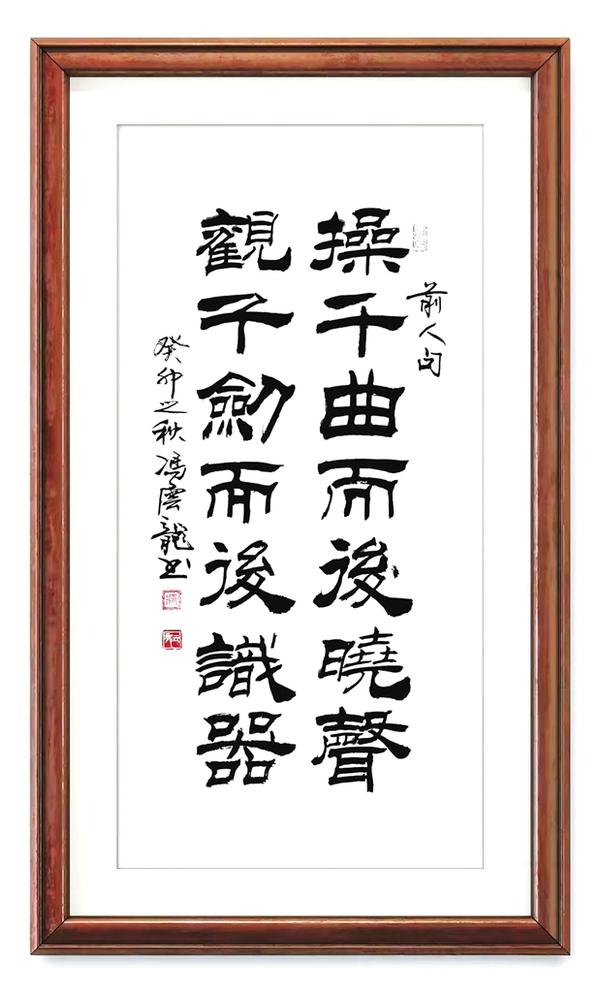 前人句
操千曲而後曉聲
觀千劍而後識器
癸卯之秋馮雲龍书